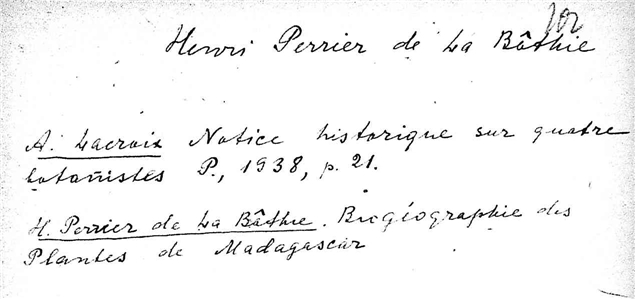 102
Henri Perrier de La Bâthie
A. Lacroix Notice historique sur quatre
botanistes P., 1938, p. 21.
H. Perrier de La Bâthie. Biogéographie des
Plantes de Madagascar